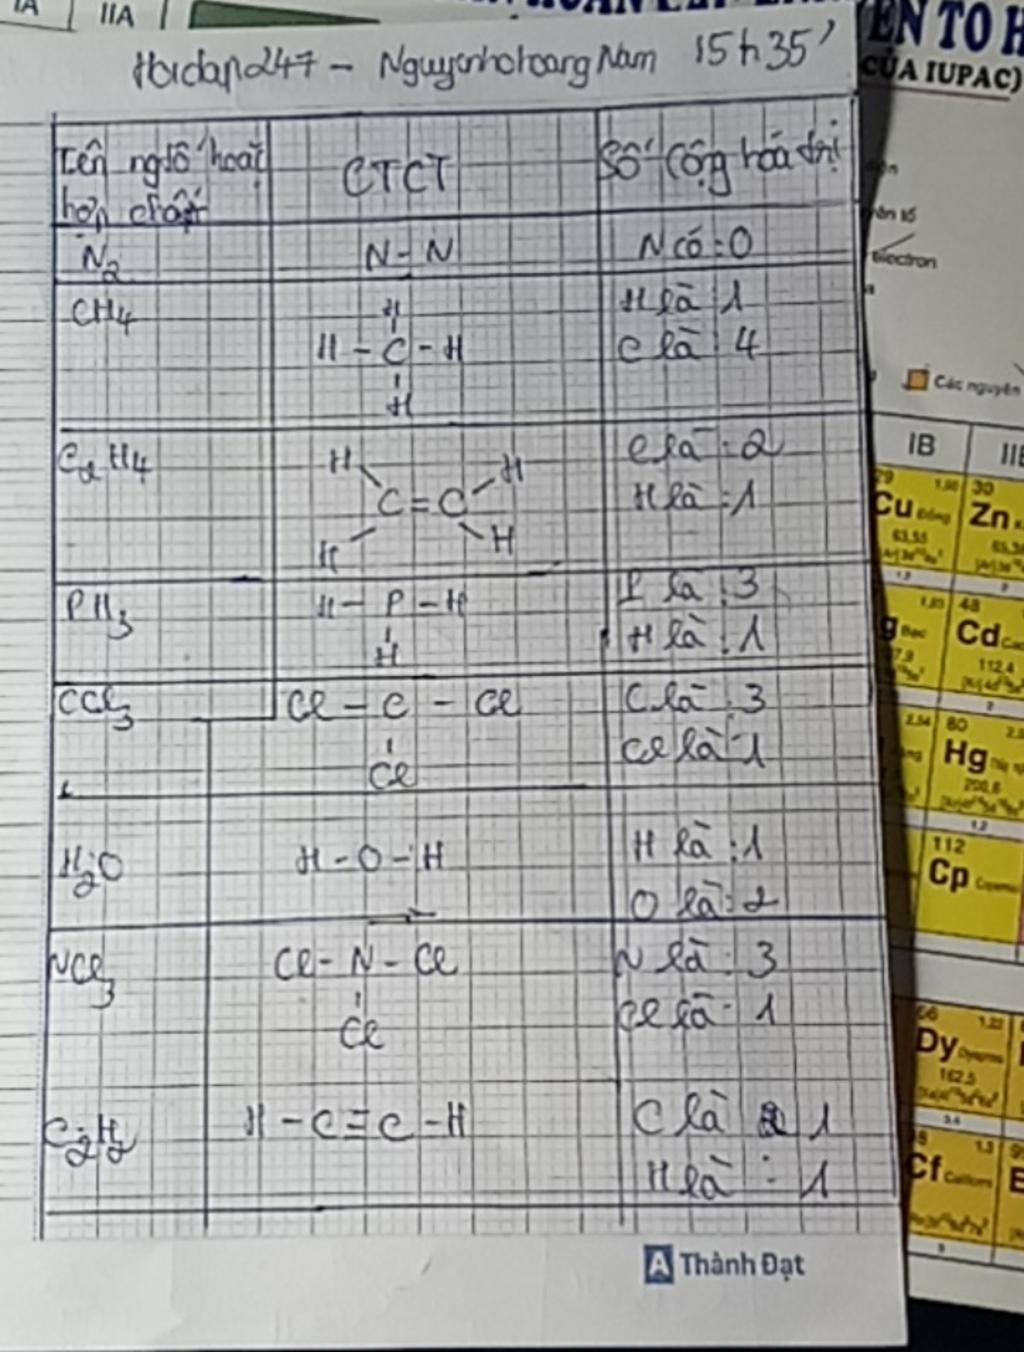 IA IIA
Hoidap247 - Nguyenhohoang Nam 15h35'
ÊN TO H
(CỦA IUPAC)
Tên ngtố hoặc hợp chất CTCT Số cộng hoá trị
N2 N - N N có : 0
CH4 H H là : 1
H - C - H C là : 4
H
C2H4 H H C là : 2
C = C H là : 1
H H
PH3 H - P - H P là : 3
H H là : 1
CCl3 Cl - C - Cl C là : 3
Cl Cl là : 1
H2O H - O - H H là : 1
O là : 2
NCl3 Cl - N - Cl N là : 3
Cl Cl là : 1
C2H2 H - C ≡ C - H C là 1
H là : 1
A Thành Đạt
ên tố
electron
Các nguyên
IB
Cu Đồng Zn
63,55
48
Cd
112,4
80
Hg
200,6
112
Cp
66
Dy
162,5
Cf